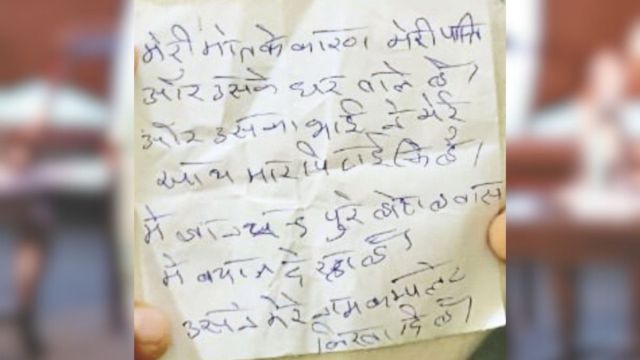 मेरी मोतके कारण मेरी पत्नि
और उसके घर वाले है।
और उसका भाई ने मेरे
साथ मार पिटाई कि है।
मे पुरे होस हवास
मे बयान दे रहा हूँ
उसने मेरे नाम कम्पलेट
लिखा दि है।